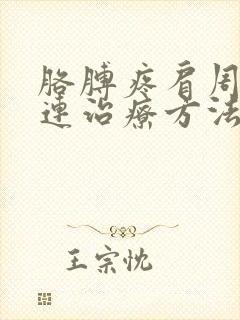 胳膊疼肩周
連治療方法
王宗忱